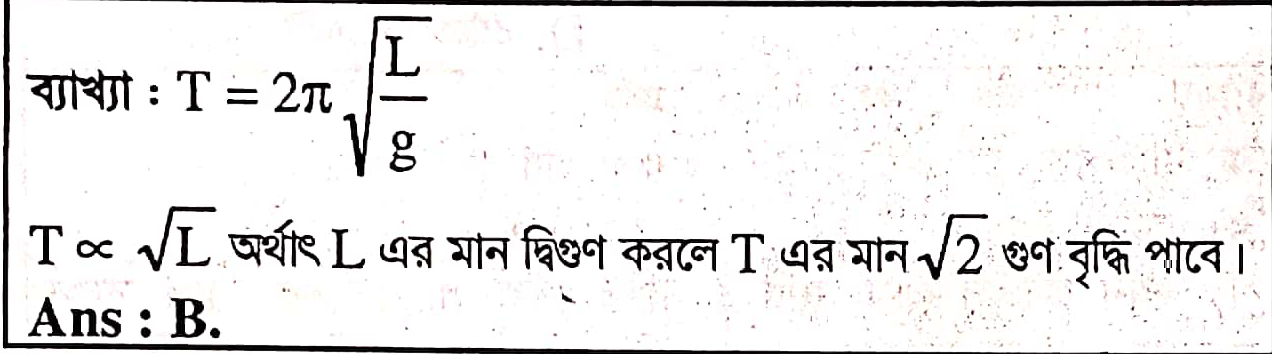 ব্যাখ্যা : T = 2π √(L/g)
T ∝ √L অর্থাৎ L এর মান দ্বিগুণ করলে T এর মান √2 গুণ বৃদ্ধি পাবে।
Ans : B.